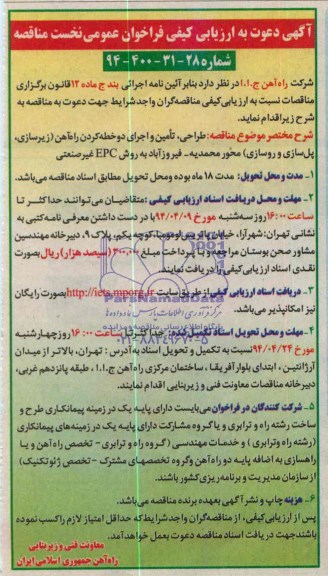 آگهی دعوت به ارزیابی کیفی فراخوان عمومی نخست مناقصه
شماره ۲۸-۳۱-۴۰۰-۹۴
شرکت راه‌آهن ج.ا.ا در نظر دارد بنابر آئین نامه اجرائی بند ج ماده ۱۲ قانون برگزاری
مناقصات نسبت به ارزیابی کیفی مناقصه‌گران واجد شرایط جهت دعوت به مناقصه به
شرح زیر اقدام نماید.
شرح مختصر موضوع مناقصه: طراحی، تأمین و اجرای دوخطه‌کردن راه‌آهن (زیرسازی،
پل‌سازی و روسازی) محور محمدیه - فیروزآباد به روش EPC غیرصنعتی
۱- مدت و محل تحویل: مدت ۱۸ ماه بوده و محل تحویل مطابق اسناد مناقصه می‌باشد.
۲- مهلت و محل دریافت اسناد ارزیابی کیفی: متقاضیان می‌توانند حداکثر تا
ساعت ۱۶:۰۰ روز سه‌شنبه مورخ ۹۴/۰۴/۰۹ با در دست داشتن معرفی نامه کتبی به
نشانی تهران: شهرآرا، خیابان پاتریس لومومبا، کوچه یکم، پلاک ۹، دبیرخانه مهندسین
مشاور صحن بوستان مراجعه و با پرداخت مبلغ ۳۰۰,۰۰۰ (سیصد هزار) ریال بصورت
نقدی اسناد ارزیابی کیفی را دریافت نمایند.
۳- دریافت اسناد ارزیابی کیفی از طریق سایت http://iets.mporg.ir بصورت رایگان
نیز امکانپذیر می‌باشد.
۴- مهلت و محل تحویل اسناد تکمیل شده: حداکثر تا ساعت ۱۶:۰۰ روز چهارشنبه
مورخ ۹۴/۰۴/۲۴ نسبت به تکمیل و تحویل اسناد به آدرس: تهران، بالاتر از میدان
آرژانتین، ابتدای بلوار آفریقا، ساختمان مرکزی راه‌آهن ج.ا.ا، طبقه پانزدهم غربی،
دبیرخانه مناقصات معاونت فنی و زیربنایی اقدام نمایند.
۵- شرکت کنندگان در فراخوان می‌بایست دارای پایه یک در زمینه پیمانکاری طرح و
ساخت رشته راه و ترابری و یا گروه مشارکت دارای پایه یک در زمینه‌های پیمانکاری
(رشته راه و ترابری) و خدمات مهندسی (گروه راه و ترابری - تخصص راه‌آهن و یا
راهسازی به اضافه پایه دو راه‌آهن و گروه تخصصهای مشترک - تخصص ژئوتکنیک)
از سازمان مدیریت و برنامه‌ریزی کشور باشند.
۶- هزینه چاپ و نشر آگهی بعهده برنده مناقصه می‌باشد.
پس از ارزیابی کیفی، از مناقصه‌گران واجد شرایط که حداقل امتیاز لازم را کسب نموده
باشند جهت دریافت اسناد مناقصه دعوت بعمل خواهد آمد.
معاونت فنی و زیربنایی
راه‌آهن جمهوری اسلامی ایران
ParsNamadData
۰۲۱-۸۸۳۴۹۶۷۰-۵